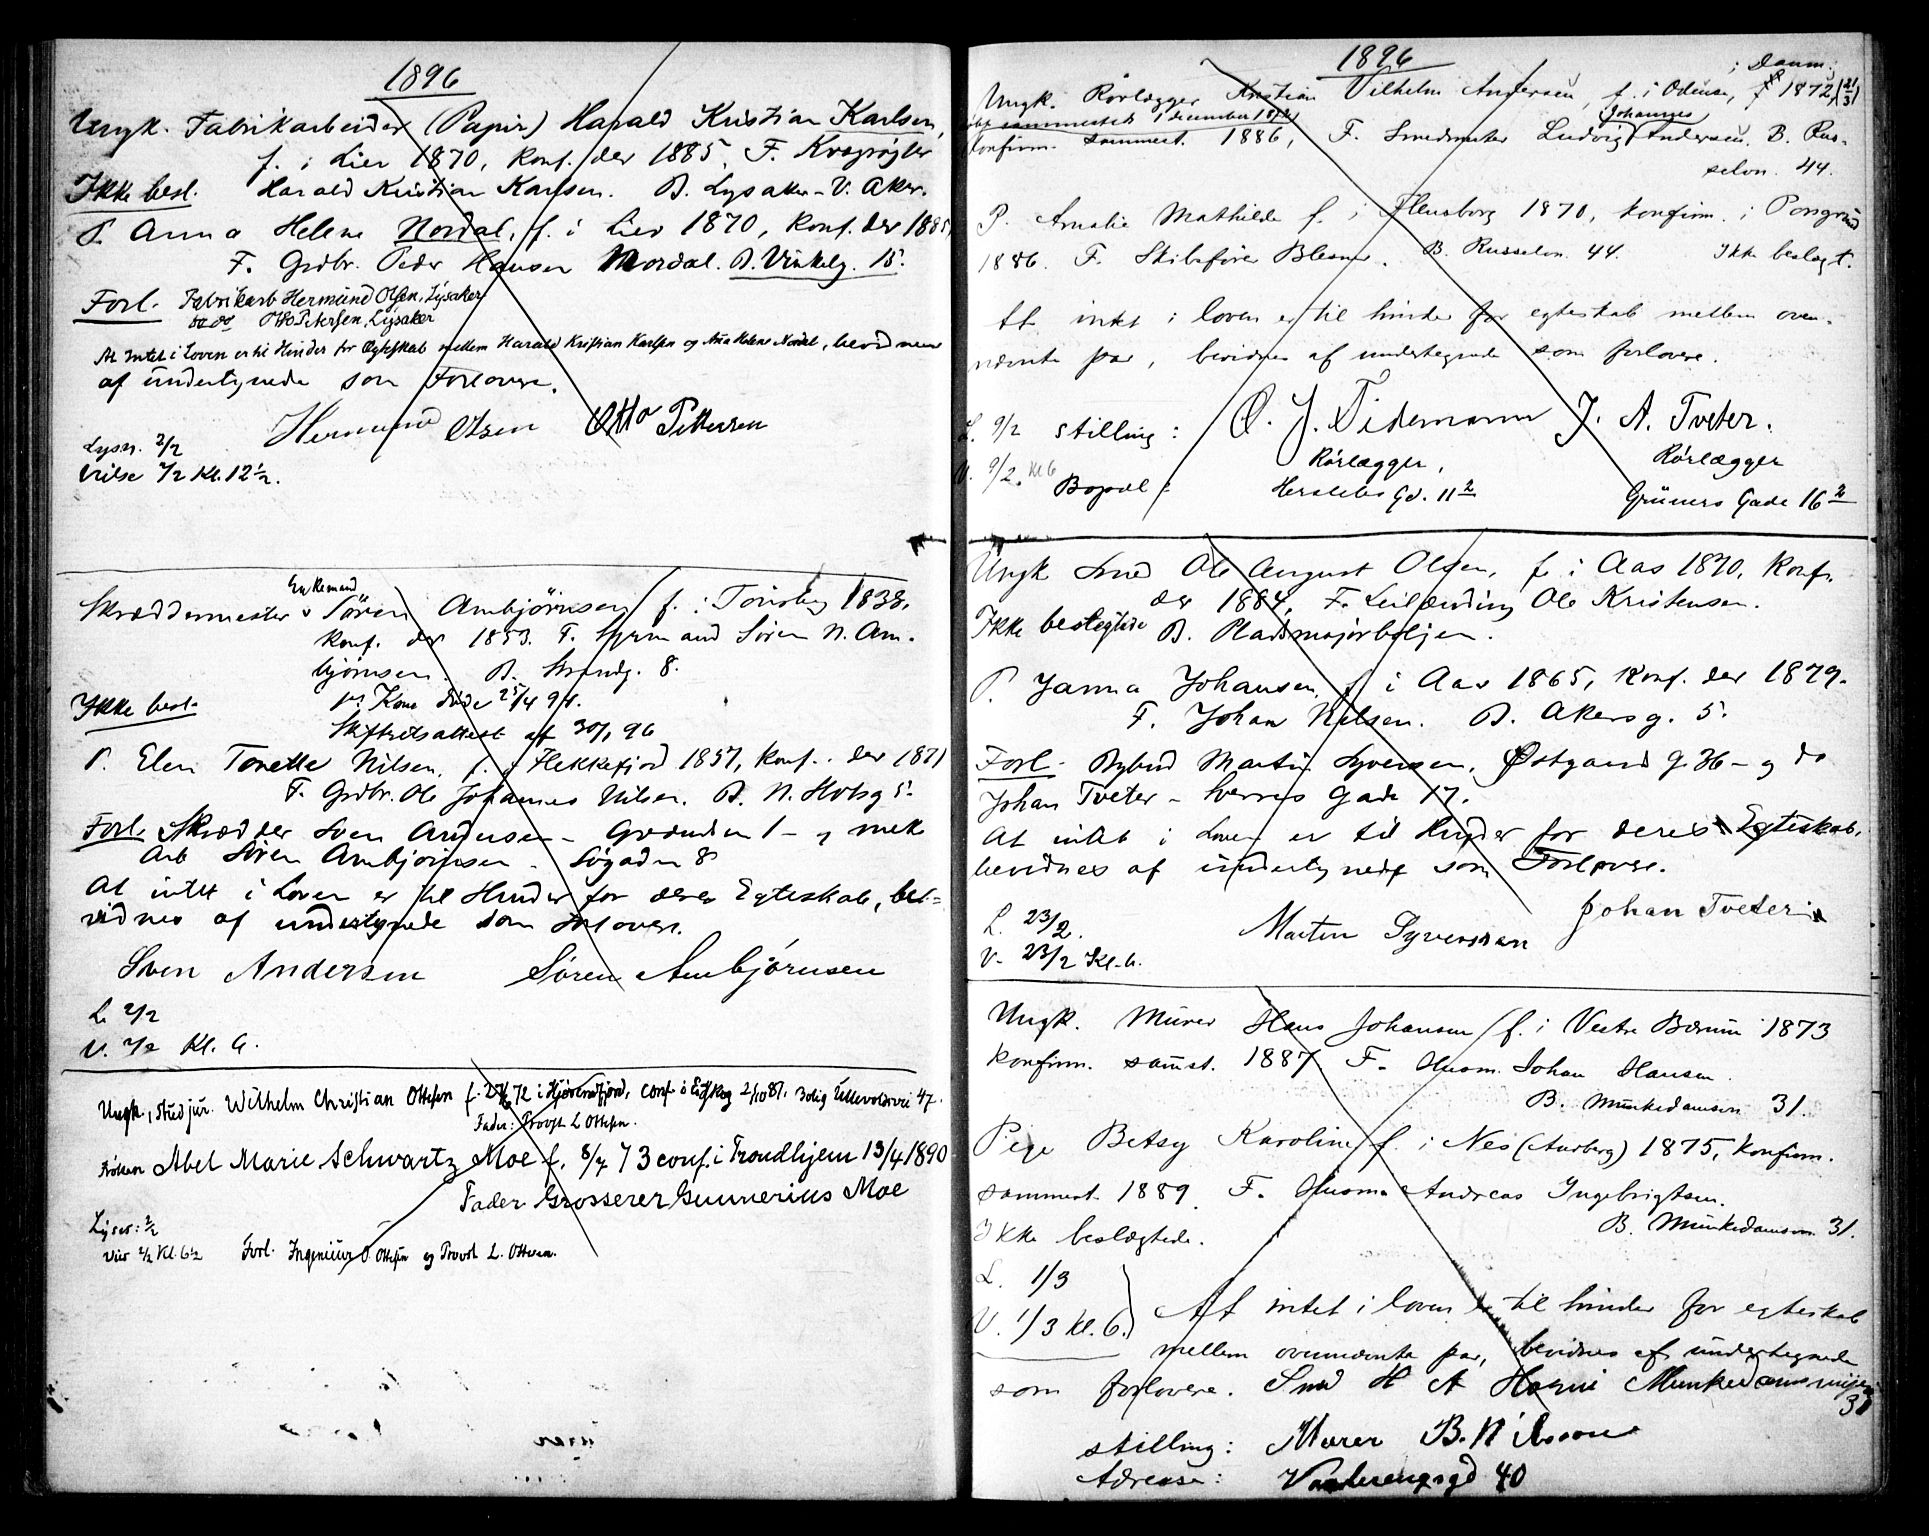 1896
Ungk. Fabrikarbeider (Papir) Harald Kristian Karlsen,
f. i Lier 1870, konf. der 1885. F. Kvægrøgter
Ikke besl. Harald Kristian Karlsen. B. Lysaker - V. Aker.
P. Anna Helene Nordal, f. i Lier 1870, konf. der 1885,
F. Grdbr. Peder Hansen Nordal. B. Vinkelg. 15.
Forl. Fabrikarb Hermund Olsen, Lysaker
do do Otto Petersen, Lysaker
At Intet i Loven er til Hinder for Egteskab mellem Harald Kristian Karlsen og Ana Helene Nordal, bevidnes
af undertegnede som Forlovere.
Hermund Olsen Otto Pettersen
Lysn. 2/2
Vielse 7/2 Kl. 12 1/2.
Enkemand
Skræddermester v Sören Ambjörnsen f. i Tönsberg 1838,
konf. der 1853. F. Styrmand Sören N. Am-
björnsen. B. Strandg. 8.
Kone döde 25/4 91.
Ikke besl.
Skifteretsattest af 30/1 96
P. Elen Tonette Nilsen, f. i Flekkefjord 1857, konf. der 1871
F. Grdbr. Ole Johannes Nilsen. B. N. Slotsg 5.
Forl. Skrædder Sven Andersen - Grænden 1 - og mek
Arb Sören Ambjörnsen - Søgaden 8
At intet i Loven er til Hinder for deres Egteskab, be-
vidnes af undertegnede som Forlovere.
Sven Andersen Sören Ambjörnsen
L. 2/2
V. 2/2 Kl. 6.
Ungk., Stud jur. Wilhelm Christian Ottesen f. 27/6 72 i Hjörundfjord, conf i Eidskog 2/10 87. Bolig Ullevoldsvei 47.
Fader: Provst L Ottesen.
Fröken Abel Marie Schwartz Moe f. 8/7 73 conf. i Trondhjem 13/4 1890
Fader Grosserer Gunnerius Moe
Lyses: 2/2
Vies 2/2 Kl. 6 1/2 Forl. Ingeniür O. Ottesen og Provst L. Ottesen.
1896
i Danm.
Ungk. Rörlægger Kristian Vilhelm Andersen, f. i Odense, 1872, (21/3)
døbt sammesteds 1 december 1872
Johannes
konfirm. sammest. 1886, F. Smedmester Ludvig Andersen. B. Rus-
seløv. 44.
P. Amalie Mathilde f. i Flensborg 1870, konfirm. i Porsgrund
1886. F. Skibsfører Blesner. B. Russeløv. 44. Ikke beslægt.
At intet i loven er til hinder for egteskab mellem oven-
nævnte par, bevidnes af undertegnede som forlovere.
L. 9/2 stilling: O. J. Tidemann J. A. Tveter.
Rörlægger, Rörlægger
V. 9/2. Kl 6 Bopæl: Herslebs Gd. 11 2 Grüners Gade 16 2
Ungk Smed Ole August Olsen, f. i Aas 1870, konf.
der 1884, F. Leilænding Ole Kristensen.
Ikke beslegtede B. Pladsmajorboligen.
P. Janna Johansen, f. i Aas 1865, Konf. der 1879.
F. Johan Nilsen. B. Akersg. 5.
Forl. Bybud Martin Syversen, Østgaards g. 36 - og do
Johan Tveter - Sverres Gade 17.
At intet i Loven er til Hinder for deres Egteskab,
bevidnes af undertegnede som Forlovere.
Johan Tveter
L. 23/2. Martin Syversen
V. 23/2 Kl. 6.
Ungk. Murer Hans Johansen f. i Vestre Bærum 1873
konfirm. samst. 1887 F. Husm. Johan Hansen.
B. Munkedamsvn 31.
Pige Betsy Karoline f. i Nes (Aurberg) 1875, konfirm.
sammest. 1889. F. Husmd Andreas Ingebrigtsen.
B. Munkedamsvn. 31.
Ikke beslægtede.
L. 1/3
V. 1/3 kl. 6. At intet i loven er til hinder for egteskab
mellem ovennævnte par, bevidnes af undertegnede
som forlovere. Smed H A Munkedamsveien
31
stilling: Murer B. Nilsson
Adresse: Vaalerengsgd 40